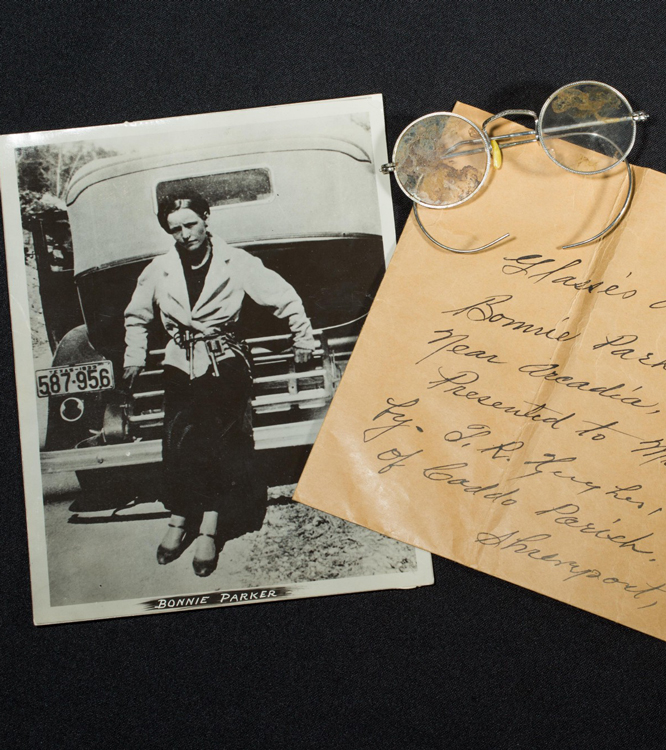 587-956
BONNIE PARKER
Glasses
Bonnie Park
Near Arcadia,
Presented to M
by- T. R. Hughes,
of Caddo Parich.
Shreveport,